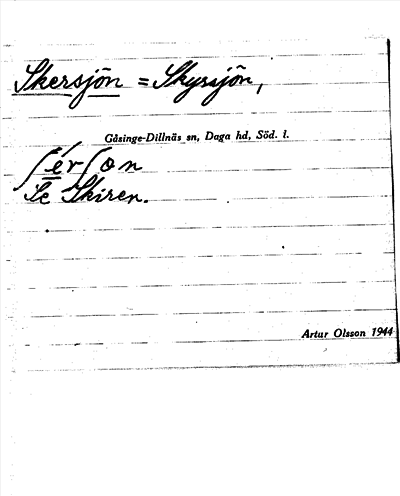 Skersjön = Skyrsjön,
Gåsinge-Dillnäs sn, Daga hd, Söd. l.
ʃérʃon
Se Skiren.
Artur Olsson 1944